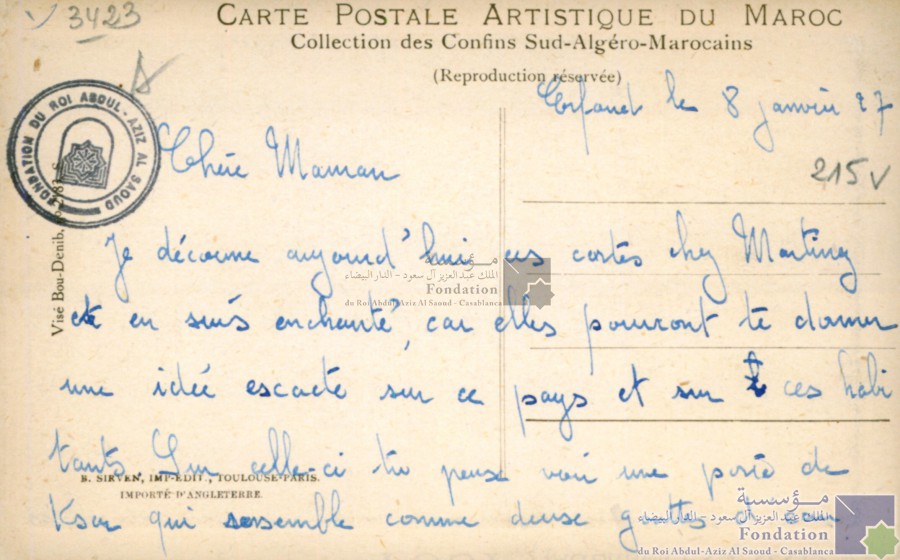 v 3423
CARTE POSTALE ARTISTIQUE DU MAROC
Collection des Confins Sud-Algéro-Marocains
(Reproduction réservée)
FONDATION DU ROI ABDUL-AZIZ AL SAOUD
Visé Bou-Denib,
Erfoud le 8 janvier 27
215 v
Chère Maman
Je découvre aujourd'hui ces cartes chez Martinez
et en suis enchanté, car elles pourront te donner
une idée escacte sur ce pays et sur ces habi
tants. Sur celle-ci tu peux voir une porte de
Ksar qui ressemble comme deux gouttes
B. SIRVEN, IMP-EDIT., TOULOUSE-PARIS.
IMPORTÉ D'ANGLETERRE.
مؤسسة
الملك عبد العزيز آل سعود - الدار البيضاء
Fondation
du Roi Abdul-Aziz Al Saoud - Casablanca
مؤسسة
الملك عبد العزيز آل سعود - الدار البيضاء
Fondation
du Roi Abdul-Aziz Al Saoud - Casablanca